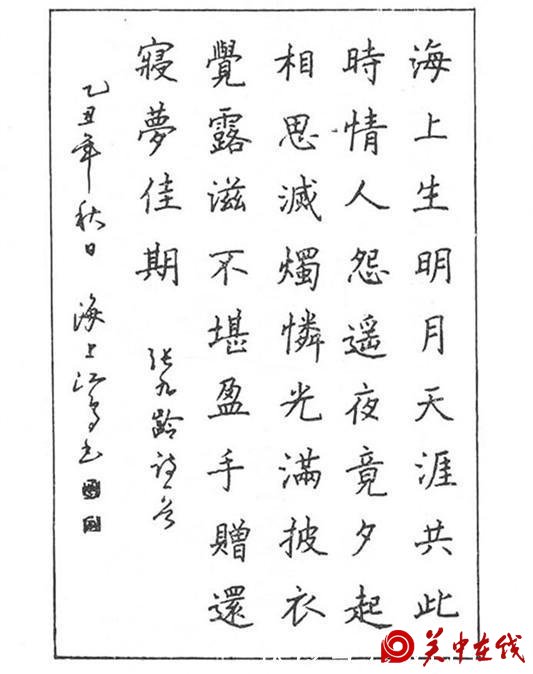 海上生明月天涯共此
時情人怨遥夜竟夕起
相思滅燭憐光滿披衣
覺露滋不堪盈手贈還
寢夢佳期
张九齡诗
乙丑年秋日 海上江书
关中在线